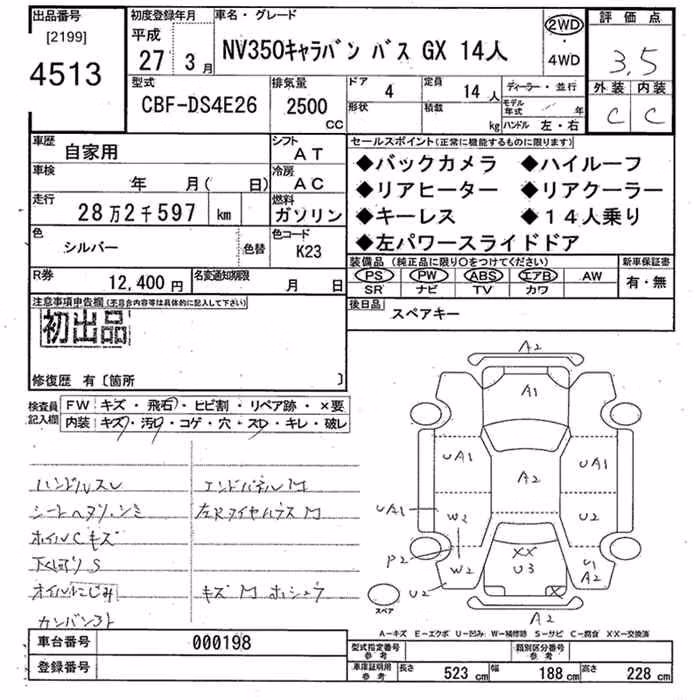 出品番号
[2199]
4513
初度登録年月
平成
27 3月
車名・グレード
NV350キャラバン バス GX 14人
2WD
・
4WD
評価点
3.5
外装 内装
C C
型式
CBF-DS4E26
排気量
2500
CC
ドア
4
定員
14人
形状
積載
kg
ディーラー・並行
モデル年式 年
ハンドル 左・右
車歴
自家用
シフト
AT
車検
年 月( 日)
冷房
AC
走行
28万2千597 km
燃料
ガソリン
色
シルバー
色替
色コード
K23
R券
12,400円
名変通知期限
月 日
セールスポイント(正常に機能するものに限ります)
◆バックカメラ ◆ハイルーフ
◆リアヒーター ◆リアクーラー
◆キーレス ◆14人乗り
◆左パワースライドドア
装備品 (純正品に限り○をつけてください)
PS PW ABS エアB AW
SR ナビ TV カワ
新車保証書
有・無
後日品
スペアキー
注意事項申告欄(不具合内容等は具体的に記入して下さい)
初出品
修復歴 有〔箇所 〕
検査員記入欄
FW キズ・飛石・ヒビ割・リペア跡・×要
内装 キズ・汚・コゲ・穴・スレ・キレ・破レ
ハンドルスレ
エンドパネルM
左Rタイヤハウス M
ホイルCキズ
下くぼりS
オイルにじみ
キズM ホシュウ
A2
A1
UA1
UA1
A2
UA1
W2
U2
P2
W2
XX
U3
X
U2
A2
A2
スペア
A-キズ E-エクボ U-凹み W-補修跡 S-サビ C-腐食 XX-交換済
車台番号
000198
登録番号
型式指定番号
参考
類別区分番号
参考
車庫証明用
参考
長さ
523 cm
幅
188 cm
高さ
228 cm